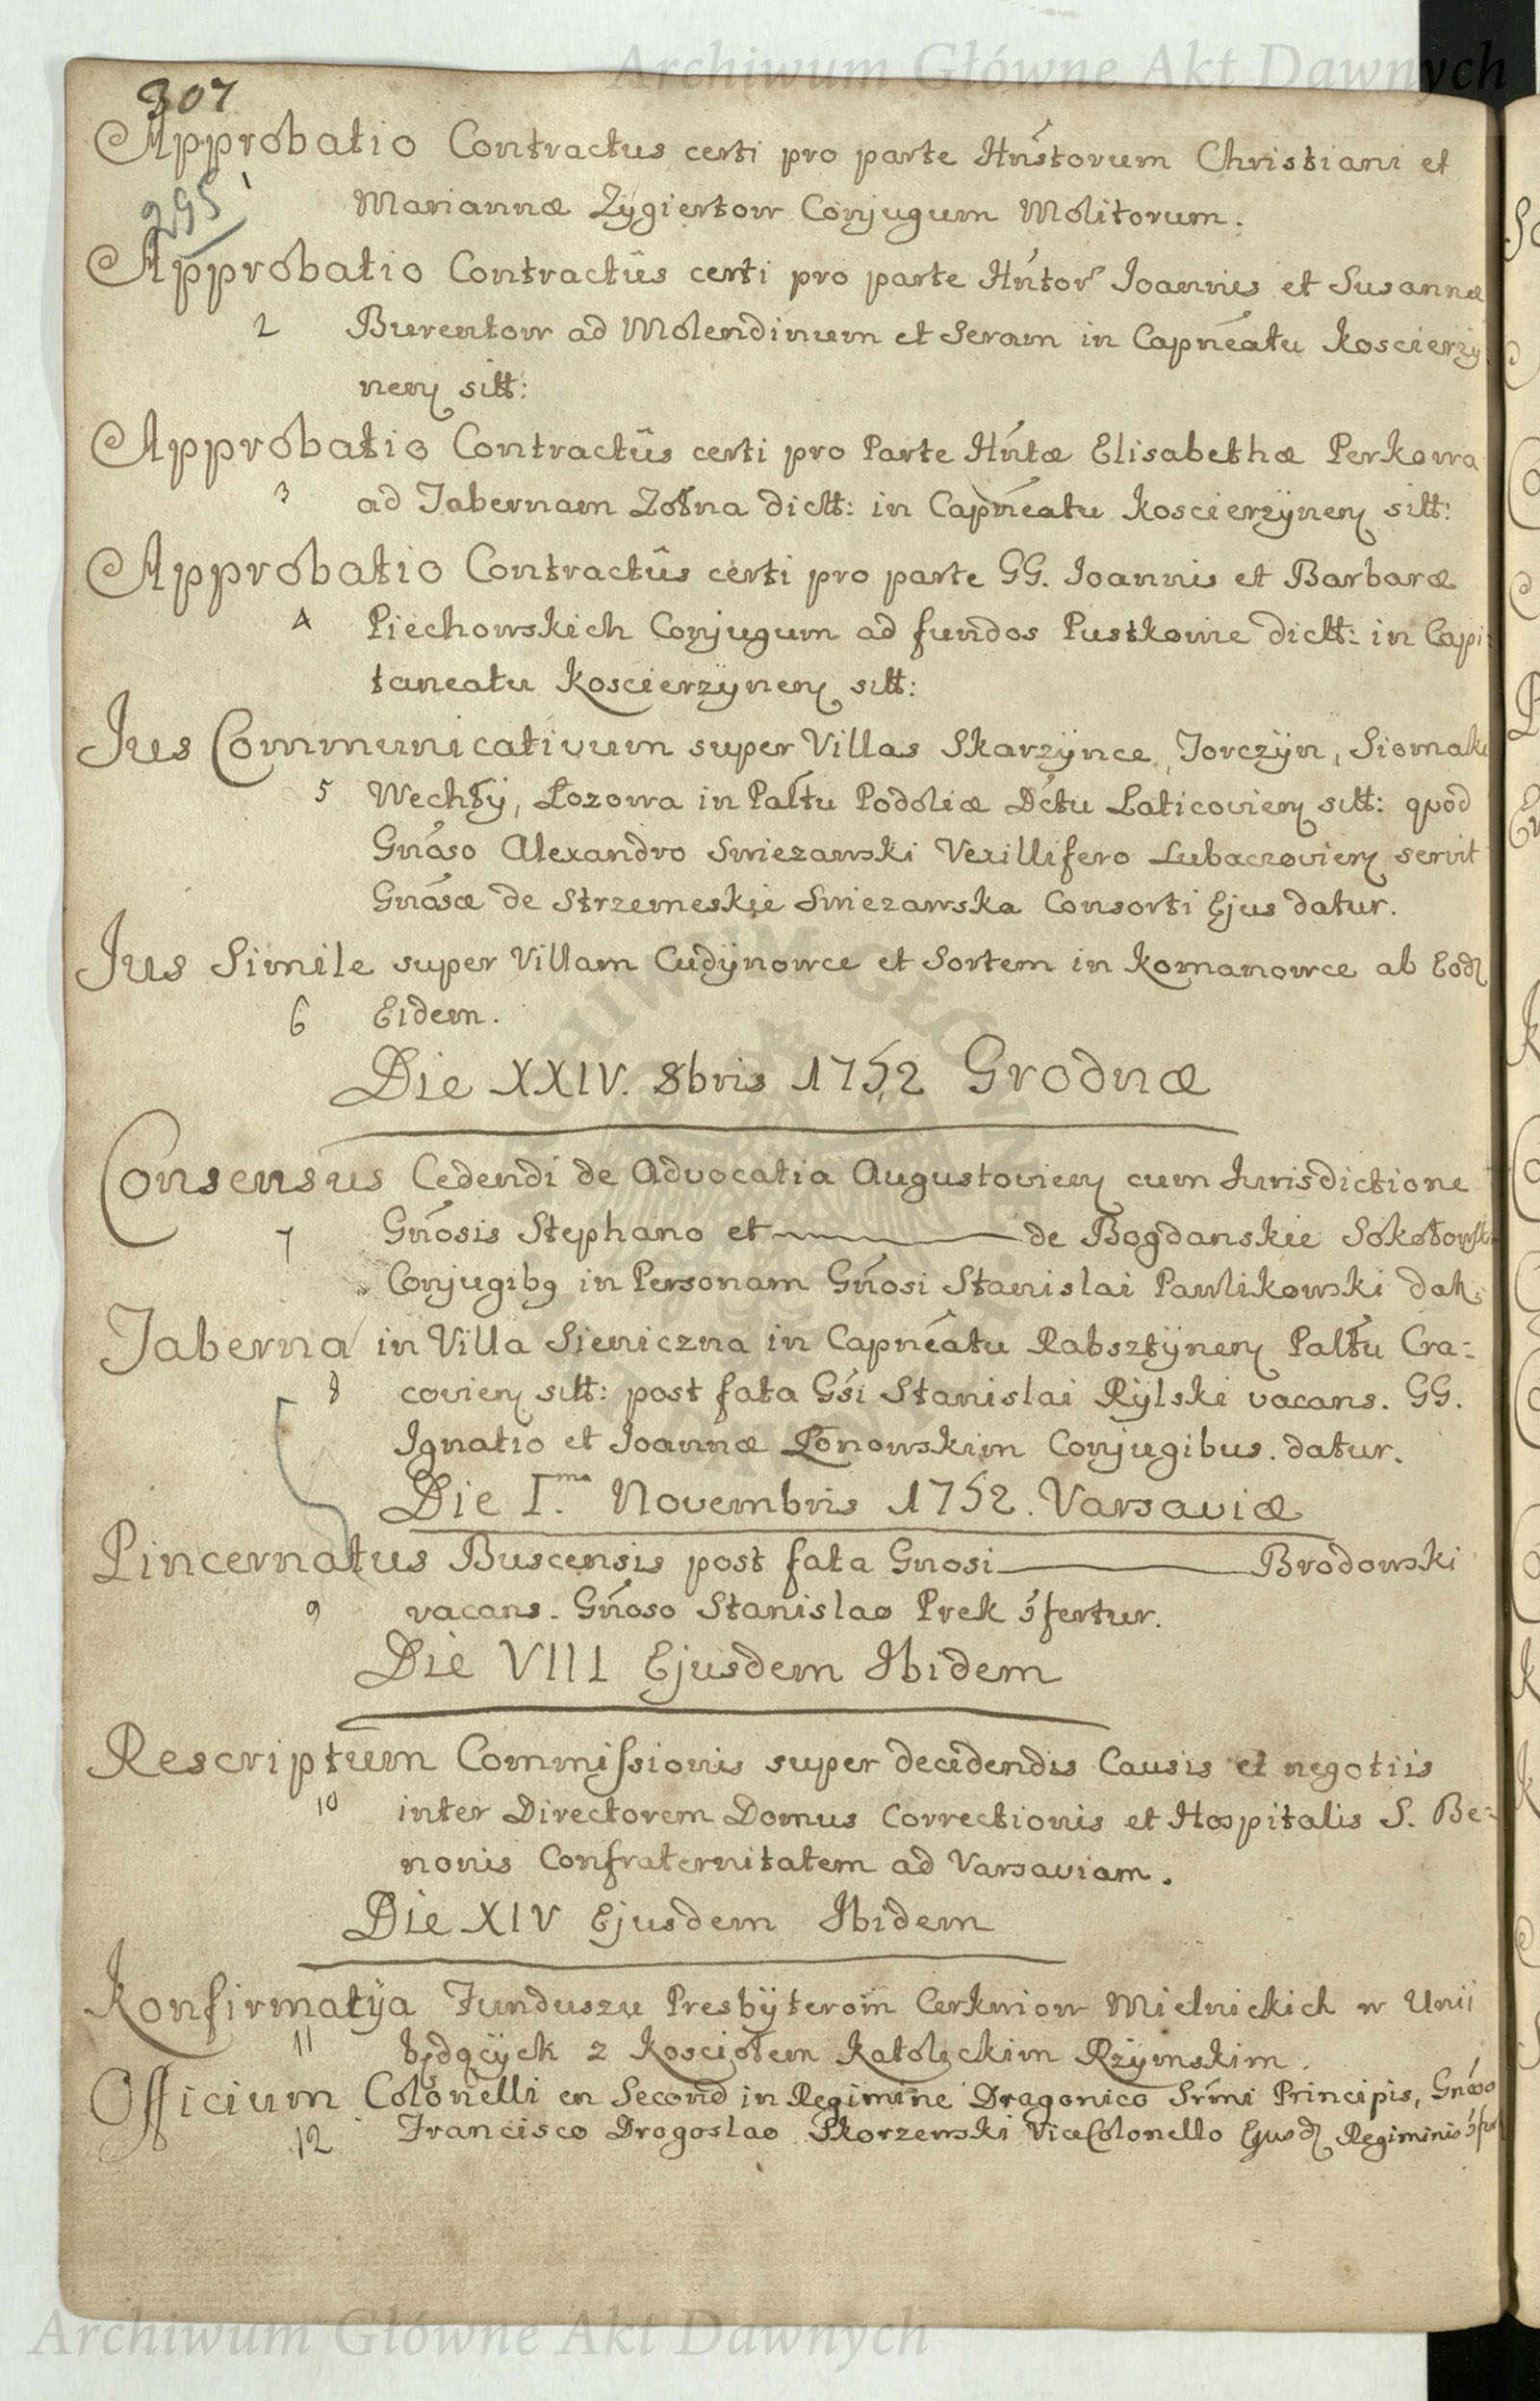 Archiwum Główne Akt Dawnych
307
Approbatio Contractus certi pro parte Hnstorum Christiani et
295 1
Mariannæ Zygiertow Conjugum Molitorum.
Approbatio Contractûs certi pro parte Hntor Joannis et Susannæ
2 Burentow ad Molendinum et Seram in Capneatu Koscierzy
nen sitt:
Approbatio Contractûs certi pro Parte Hntæ Elisabethæ Perkowa
3 ad Tabernam Zołna dictt: in Capneatu Koscierzÿnen sitt:
Approbatio Contractûs certi pro parte GG. Joannis et Barbaræ
4 Piechowskich Conjugum ad fundos Pustkowie dictt: in Capi:
taneatu Koscierzÿnen sitt:
Jus Communicativum super Villas Skarzÿnce, Torczÿn, Siomaki
5 Wechłÿ, Łozowa in Paltu Podoliæ Dctu Laticovien sitt: quod
Gnoso Alexandro Swiezawski Vexillifero Lubaczovien servit
Gnosæ de Strzemeskie Swiezawska Consorti Ejus datur.
Jus Simile super Villam Cudÿnowce et Sortem in Komanowce ab Eod
6 Eidem.
Die XXIV. 8bris 1752 Grodnæ
Consensus Cedendi de Advocatia Augustovien cum Jurisdictione
7 Gnosis Stephano et ——— de Bogdanskie Sokołowsk
Conjugibg in Personam Gnosi Stanislai Pawlikowski dat.
Taberna in Villa Sieniczna in Capneatu Rabsztÿnen Paltu Cra:
8 covien sitt: post fata Gsi Stanislai Rÿlski vacans. GG.
Ignatio et Joannæ Łonowskim Conjugibus. datur.
Die I.ma Novembris 1752. Varsaviæ
Pincernatus Buscensis post fata Gnosi ——— Brodowski
9 vacans. Gnoso Stanislao Prek 3fertur.
Die VIII Ejusdem Ibidem
Rescriptum Commissionis super decidendis Causis et negotiis
10 inter Directorem Domus Correctionis et Hospitalis S. Be:
nonis Confraternitatem ad Varsaviam.
Die XIV Ejusdem Ibidem
Konfirmatÿa Funduszu Presbÿterom Cerkwiow Mielnickich w Unii
11 będącÿch z Kosciołem Katolickim Rzÿmskim.
Officium Colonelli en Second in Regimine Dragonico Srmi Principis, Gnoso
12 Francisco Drogoslao Skorzewski ViceColonello Ejusd Regiminis 3fer
Archiwum Główne Akt Dawnych